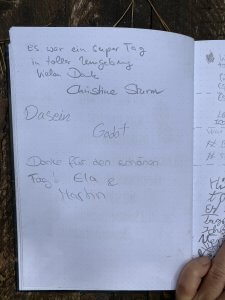 Es war ein super Tag
in toller Umgebung
Vielen Dank
Christine
Dasein
Godot
Danke für den schönen
Tag! Ela &
Martin